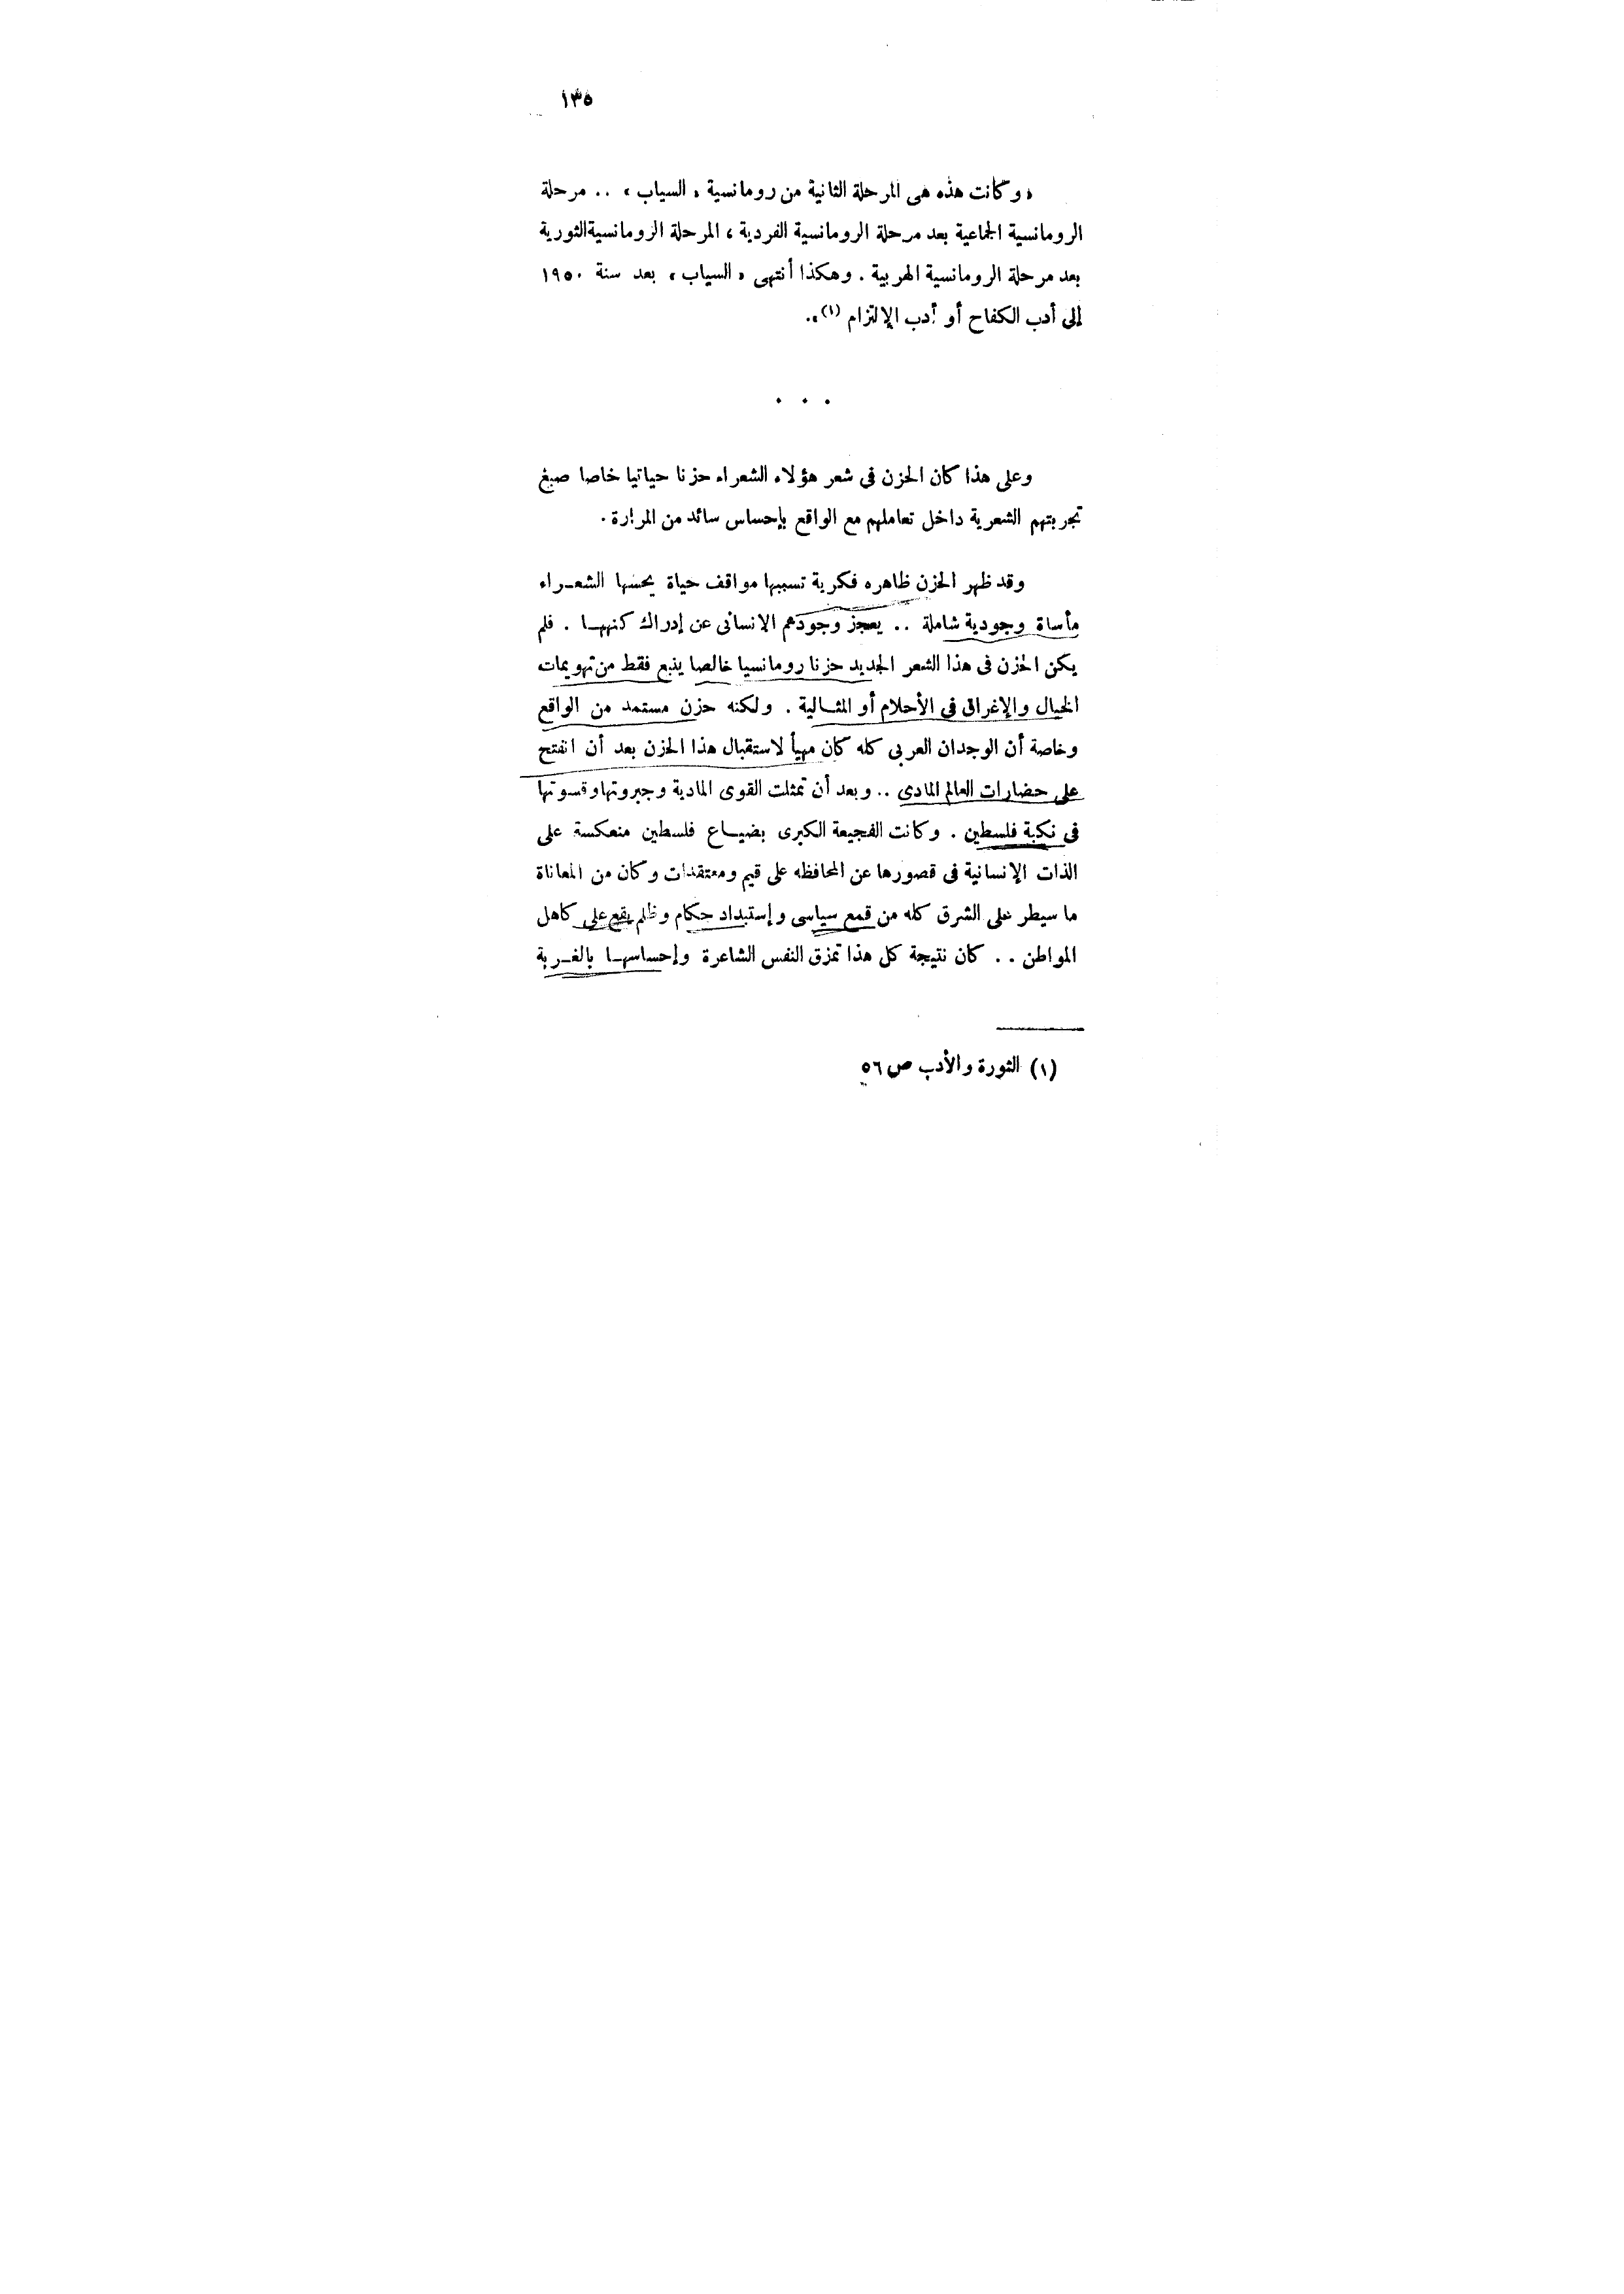 ١٣٥
« وكانت هذه هى المرحلة الثانية من رومانسية « السياب » .. مرحلة
الرومانسية الجماعية بعد مرحلة الرومانسية الفردية ، المرحلة الرومانسية الثورية
بعد مرحلة الرومانسية الهربية . وهكذا أنتهى « السياب » بعد سنة ١٩٥٠
إلى أدب الكفاح أو أدب الإلتزام (١)».
. . .
وعلى هذا كان الحزن فى شعر هؤلاء الشعراء حزنا حياتيا خاصا صبغ
تجربتهم الشعرية داخل تعاملهم مع الواقع بإحساس سائد من المرارة .
وقد ظهر الحزن ظاهره فكرية تسببها مواقف حياة يحسها الشعـراء
مأساة وجودية شاملة .. يعجز وجودهم الانسانى عن إدراك كنههـا . فلم
يكن الحزن فى هذا الشعر الجديد حزنا رومانسيا خالصا ينبع فقط من تهويمات
الخيال والإغراق فى الأحلام أو المثـالية . ولكنه حزن مستمد من الواقع
وخاصة أن الوجدان العربى كله كان مهيأ لاستقبال هذا الحزن بعد أن انفتح
على حضارات العالم المادى .. وبعد أن تمثلت القوى المادية وجبروتها وقسوتها
فى نكبة فلسطين . وكانت الفجيعة الكبرى بضيـاع فلسطين منعكسة على
الذات الإنسانية فى قصورها عن المحافظه على قيم ومعتقدات وكان من المعاناة
ما سيطر على الشرق كله من قمع سياسى وإستبداد حكام وظلم يقع على كاهل
المواطن .. كان نتيجة كل هذا تمزق النفس الشاعرة وإحساسهـا بالغـربة
(١) الثورة والأدب ص ٥٦